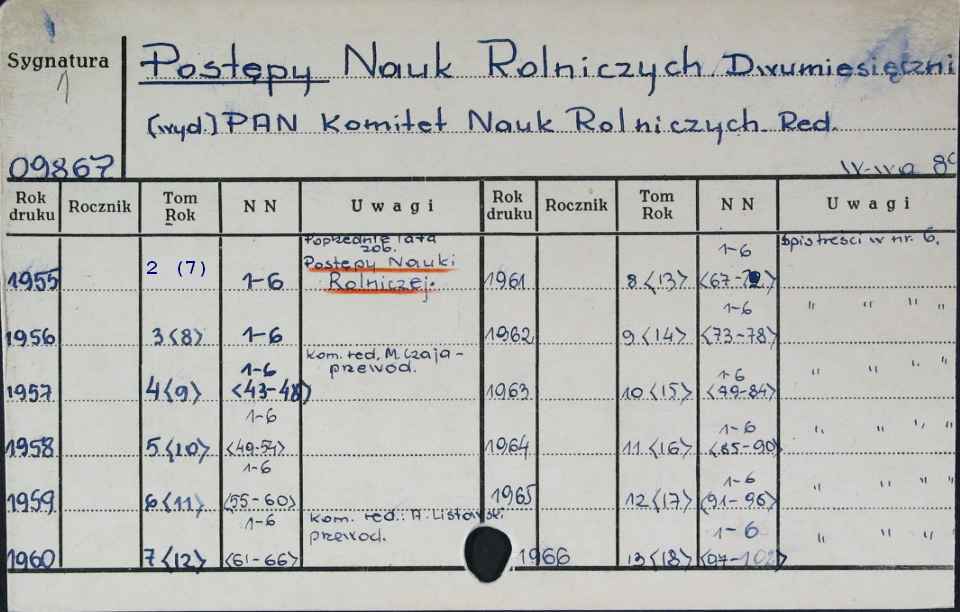 Sygnatura
Postępy Nauk Rolniczych Dwumiesięczni
(wyd.) PAN Komitet Nauk Rolniczych Red.
09867 W-wa 8°
Rok druku Rocznik Tom Rok N N Uwagi Rok druku Rocznik Tom Rok N N Uwagi
Poprzednie lata zob. 1-6 Spis treści w nr. 6.
1955 2 (7) 1-6 Postępy Nauki Rolniczej. 1961 8<13> <67-72>
1-6 " " " "
1956 3<8> 1-6 1962 9<14> <73-78>
1-6 Kom. red. M. Czaja - przewod. 1-6 " " " "
1957 4<9> <43-48> 1963 10<15> <79-84>
1-6 1-6 " " " "
1958 5<10> <49-54> 1964 11<16> <85-90>
1-6 1-6 " " " "
1959 6<11> <55-60> 1965 12<17> <91-96>
1-6 Kom. red.: A. Listowski przewod. 1-6 " " "
1960 7<12> <61-66> 1966 13<18> <97-102>